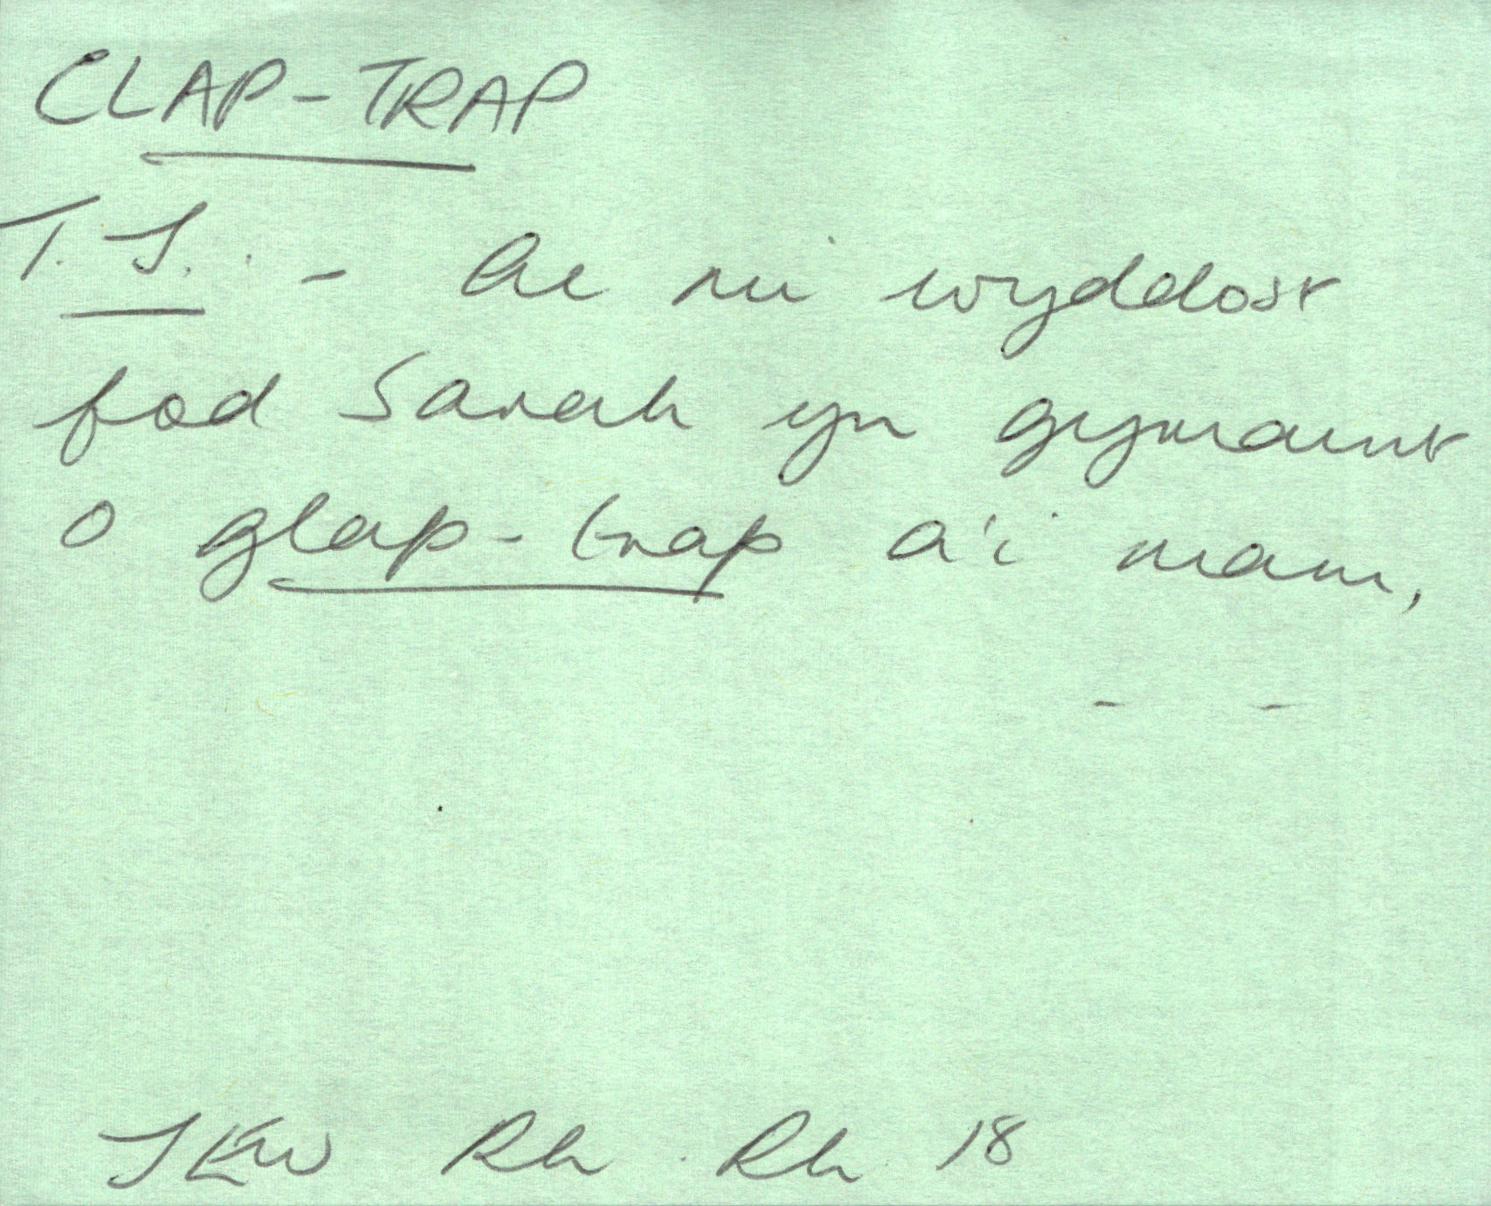 CLAP-TRAP
T.J. - Ae ni wyddost
fod Sarah yn gymaint
o glap-trap a'i mam,
- -
JEW Rh. Rh. 18